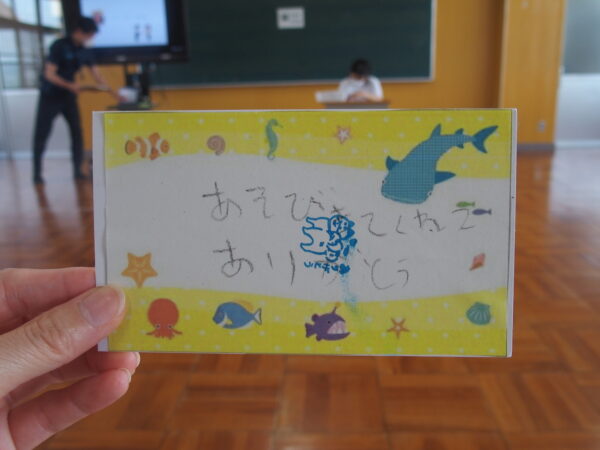 あそびきてくれて
ありがとう